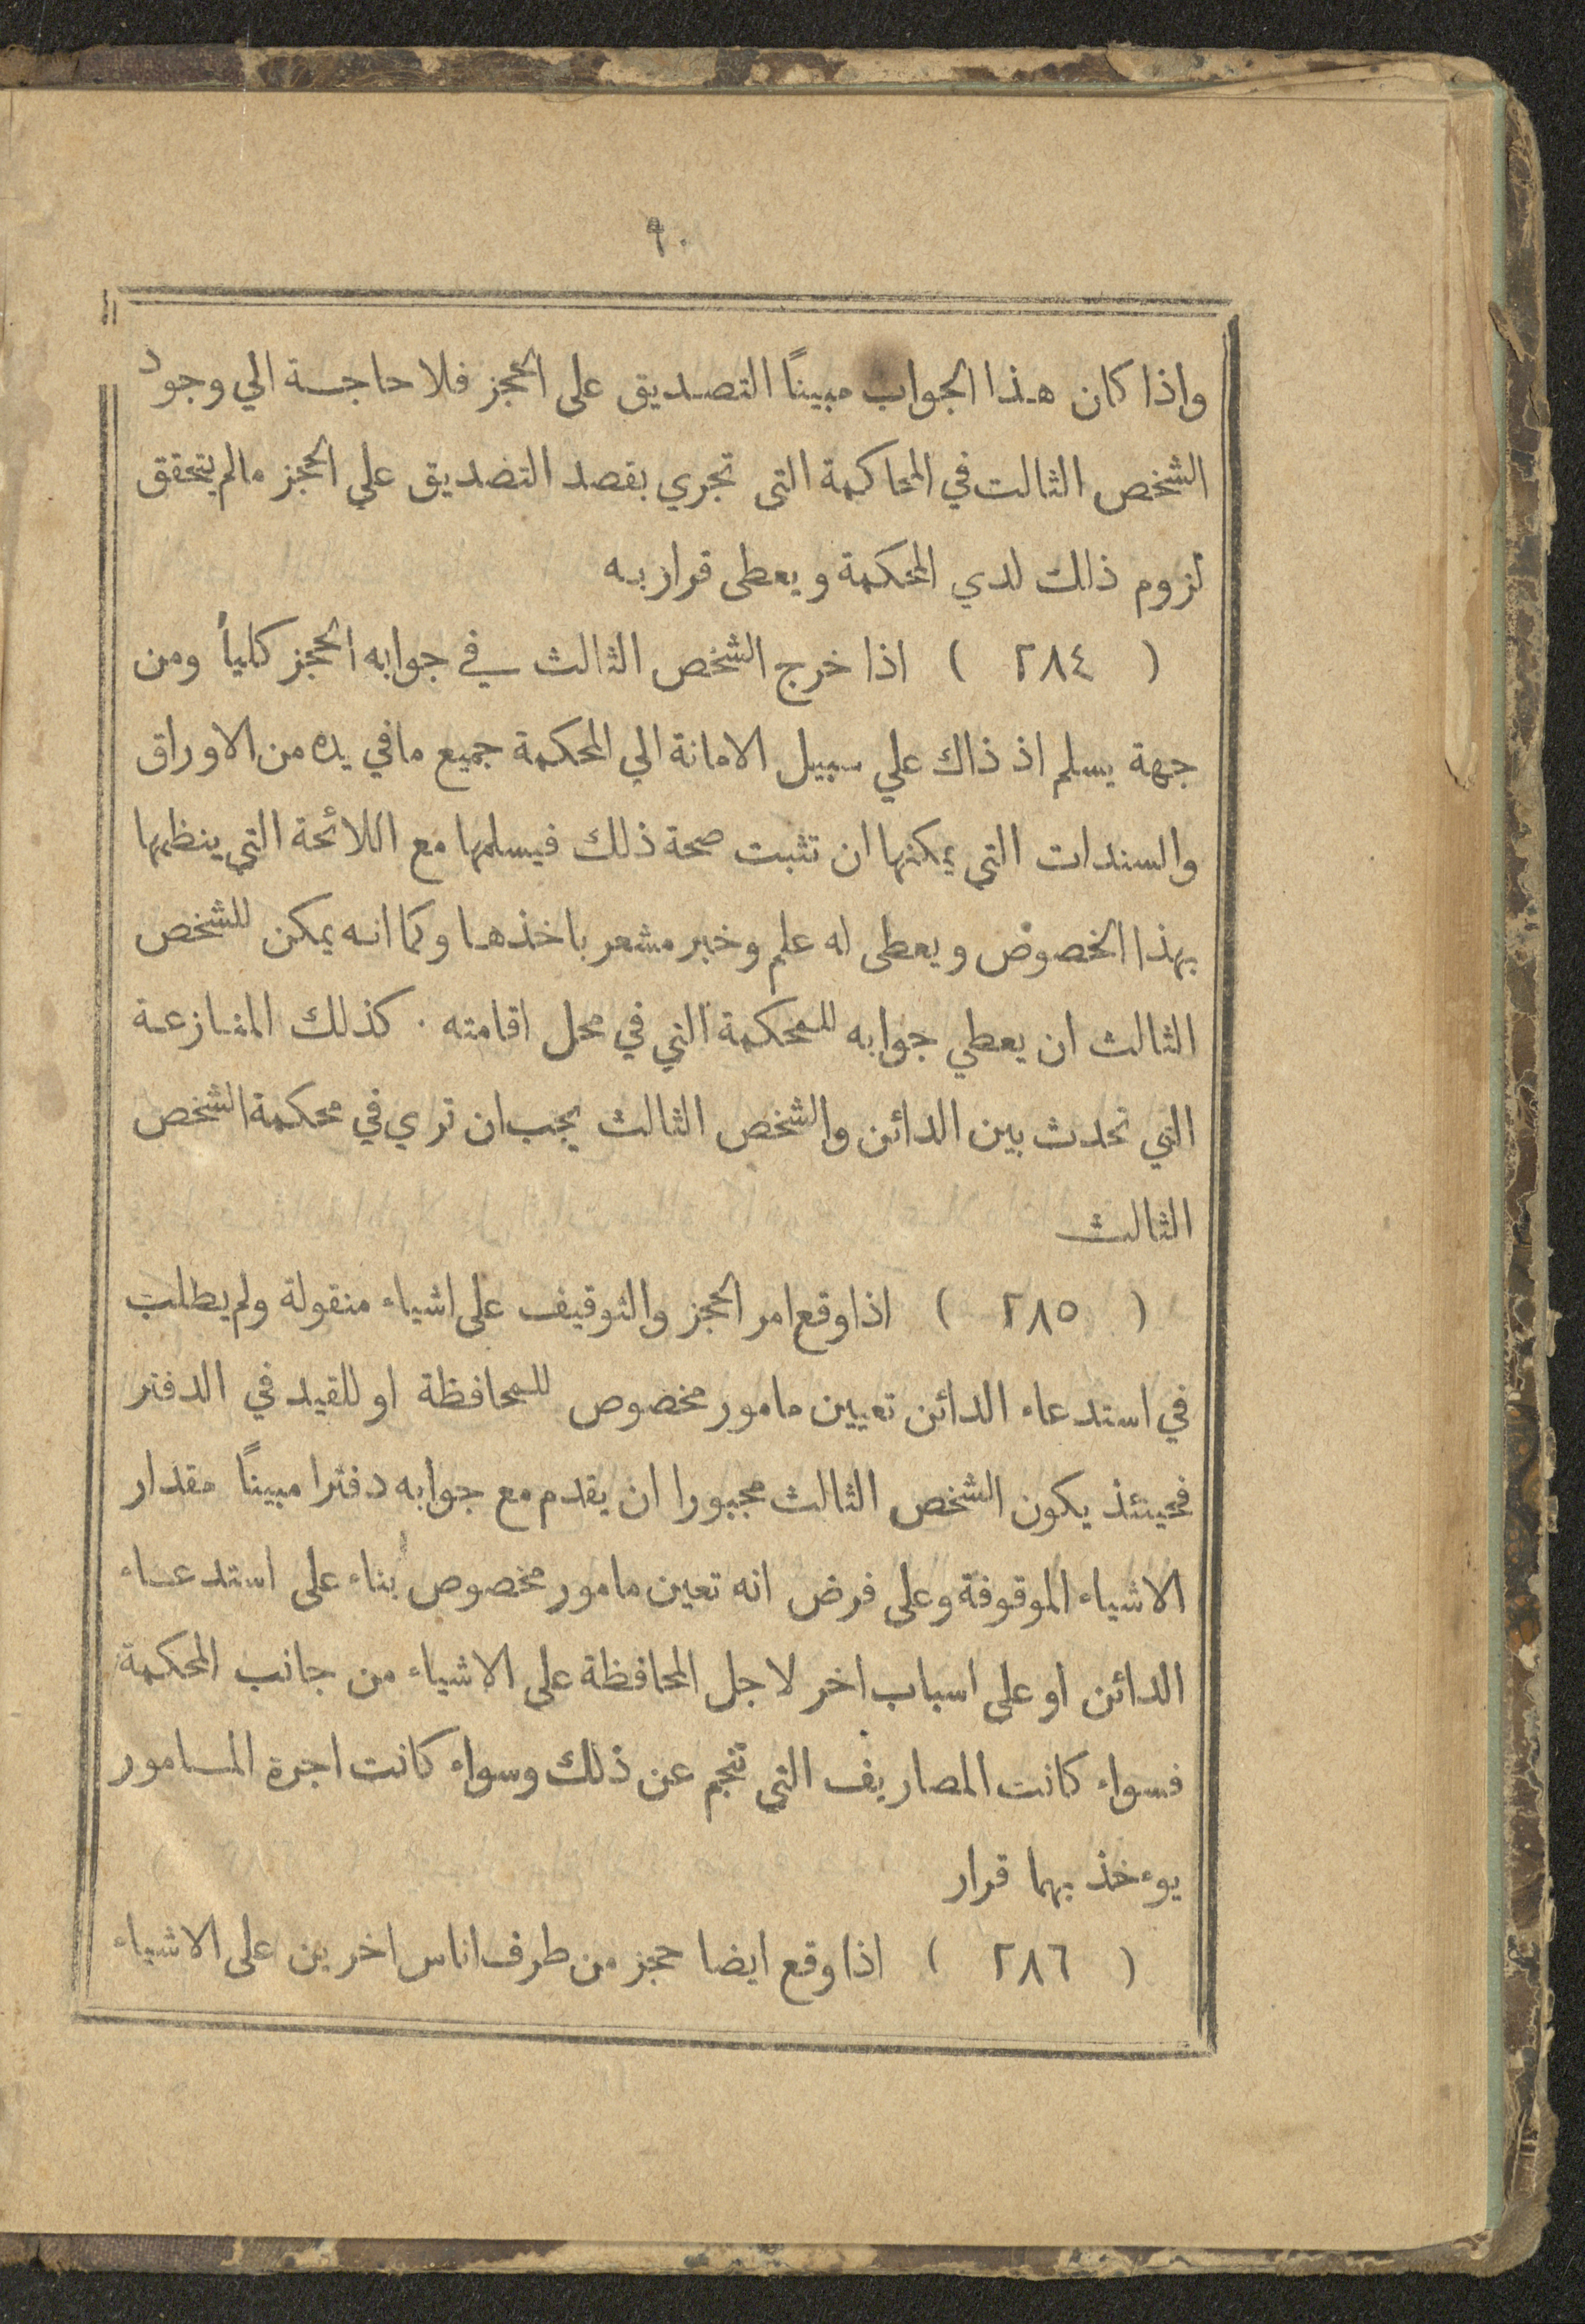 ٩٠
واذا كان هذا الجواب مبيناً التصديق على الحجز فلا حاجة الي وجود
الشخص الثالث في المحاكمة التي تجري بقصد التضديق علي الحجز مالم يتحقق
لزوم ذالك لدي المحكمة ويعطى قرار به
( ٢٨٤ ) اذا خرج الشخص الثالث في جوابه الحجز كلياً ومن
جهة يسلم اذ ذاك علي سبيل الامانة الي المحكمة جميع مافي يده من الاوراق
والسندات التي يمكنها ان تثبت صحة ذلك فيسلمها مع اللائحة التي ينظمها
بهذا الخصوص ويعطى له علم وخبر مشعر باخذها وكما انه يمكن للشخص
الثالث ان يعطي جوابه للمحكمة التي في محل اقامته . كذلك المنازعة
التي تحدث بين الدائن والشخص الثالث يجب ان تري في محكمة الشخص
الثالث
( ٢٨٥ ) اذا وقع امر الحجز والتوقيف على اشياء منقولة ولم يطلب
في استدعاء الدائن تعيين مامور مخصوص للمحافظة او للقيد في الدفتر
فحينئذ يكون الشخص الثالث مجبورا ان يقدم مع جوابه دفترا مبيناً مقدار
الاشياء الموقوفة وعلى فرض انه تعين مامور مخصوص بناء على استدعاء
الدائن او على اسباب اخر لاجل المحافظة على الاشياء من جانب المحكمة
فسواء كانت المصاريف التي تنجم عن ذلك وسواء كانت اجرة المامور
يوءخذ بهما قرار
( ٢٨٦ ) اذا وقع ايضا حجز من طرف اناس اخرين على الاشياء